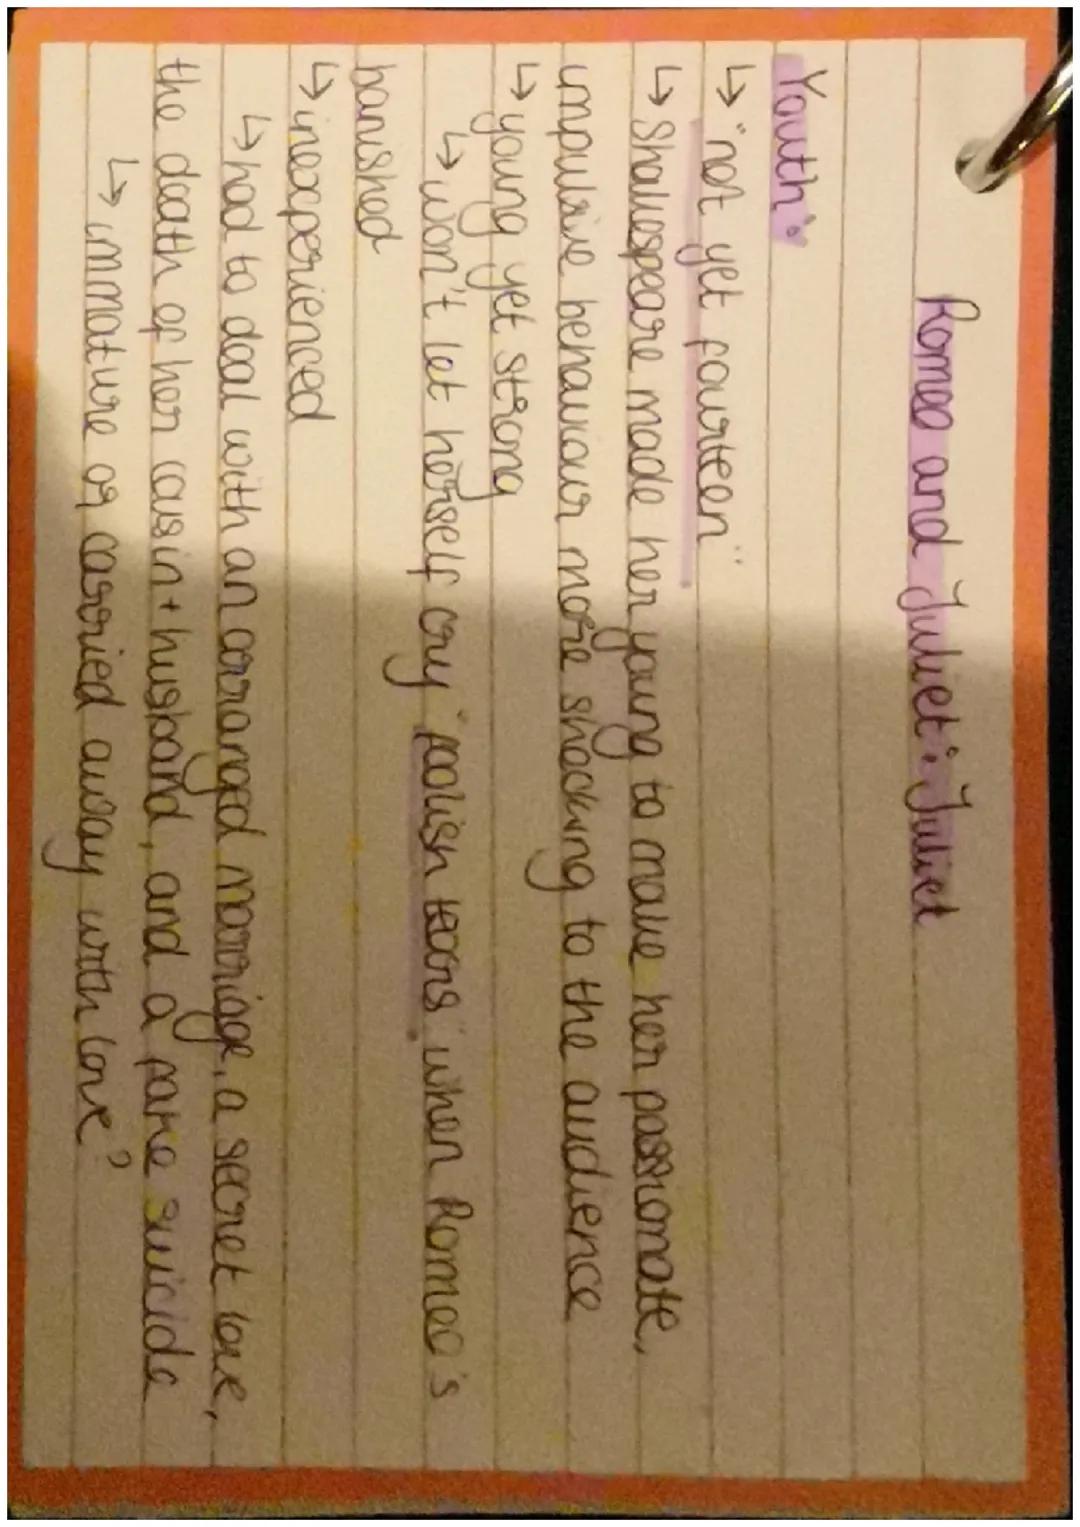 Romeo and Juliet: Juliet
Youth:
↳ "not yet fourteen"
↳ Shakespeare made her young to make her passionate,
impulsive behaviour more shocking to the audience
↳ young yet strong
↳ won't let herself cry "foolish tears" when Romeo's
banished
↳ inexperienced
↳ had to deal with an arranged marriage, a secret love,
the death of her cusin + husband, and a fake suicide
↳ immature or carried away with love?